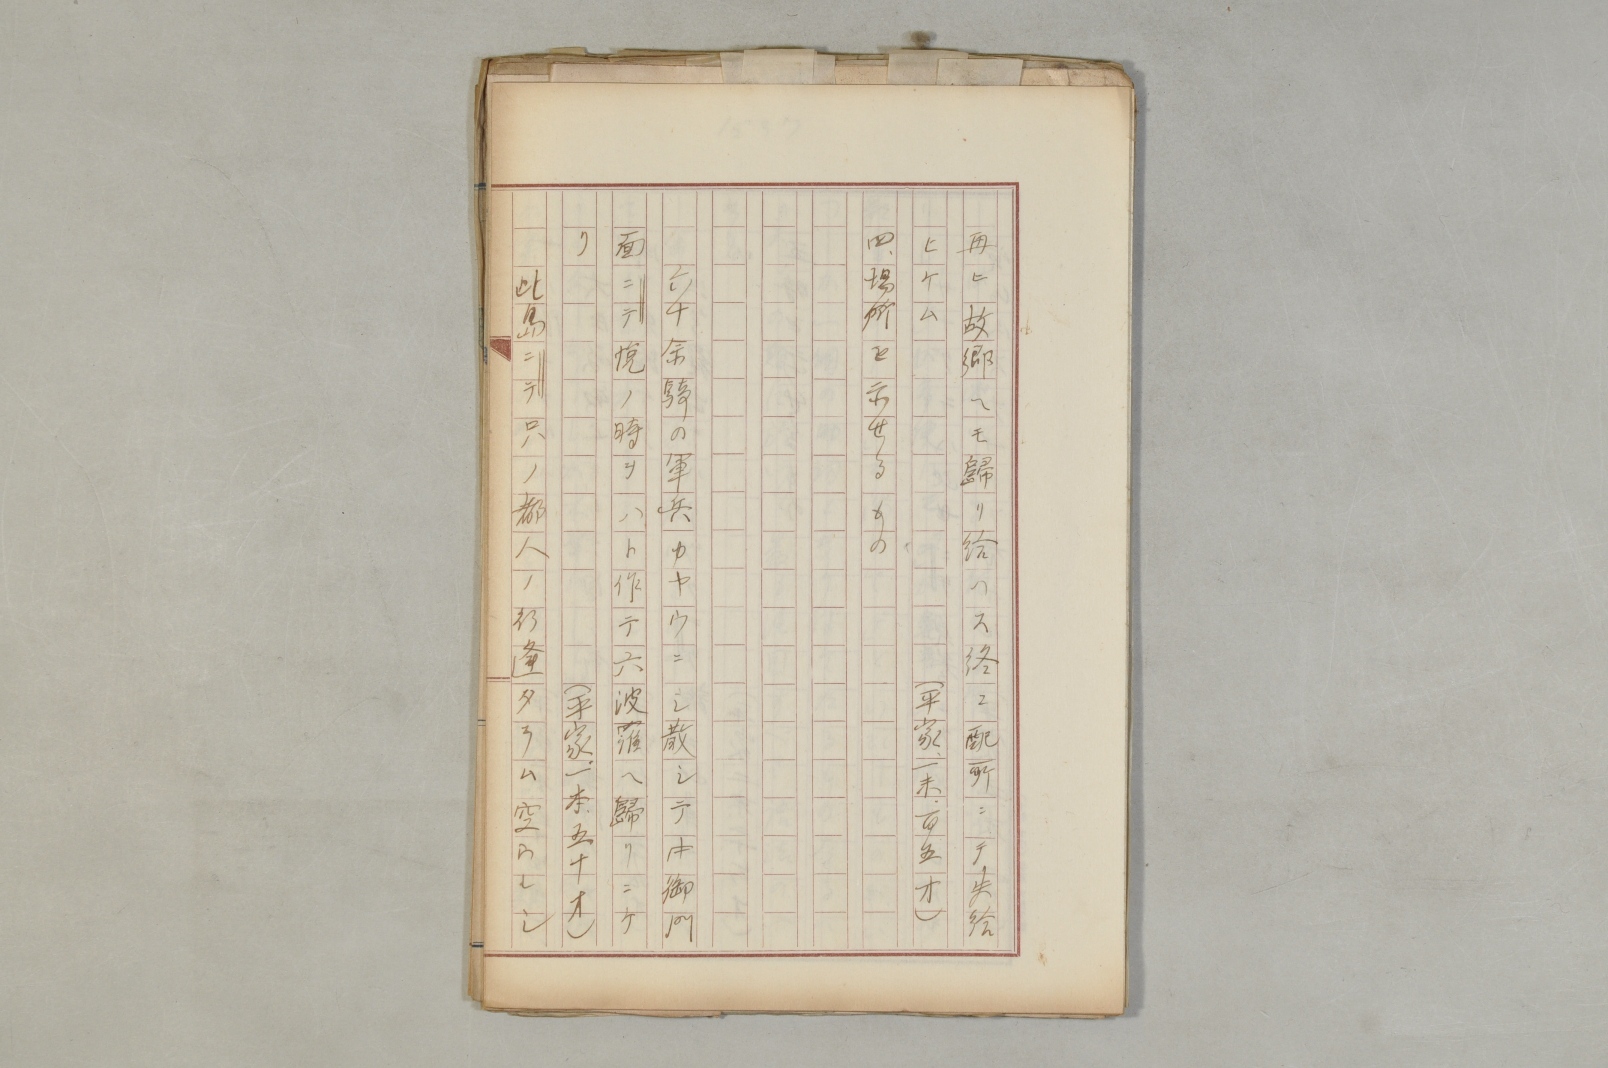 再ヒ故郷ヘモ歸リ給ハス終ニ配所ニテ失給
ヒケム　　　　　　　　　（平家、一末、百五オ）
四、場所を示せるもの
六十余騎の軍兵カヤウニシ散シテ中御門
面ニテ焼ノ時ヲハト作テ六波羅ヘ歸リニケ
リ　　　　　　　　　（平家、一本、五十オ）
此島ニテ只ノ都人ノ行逢タラム空ウレシ